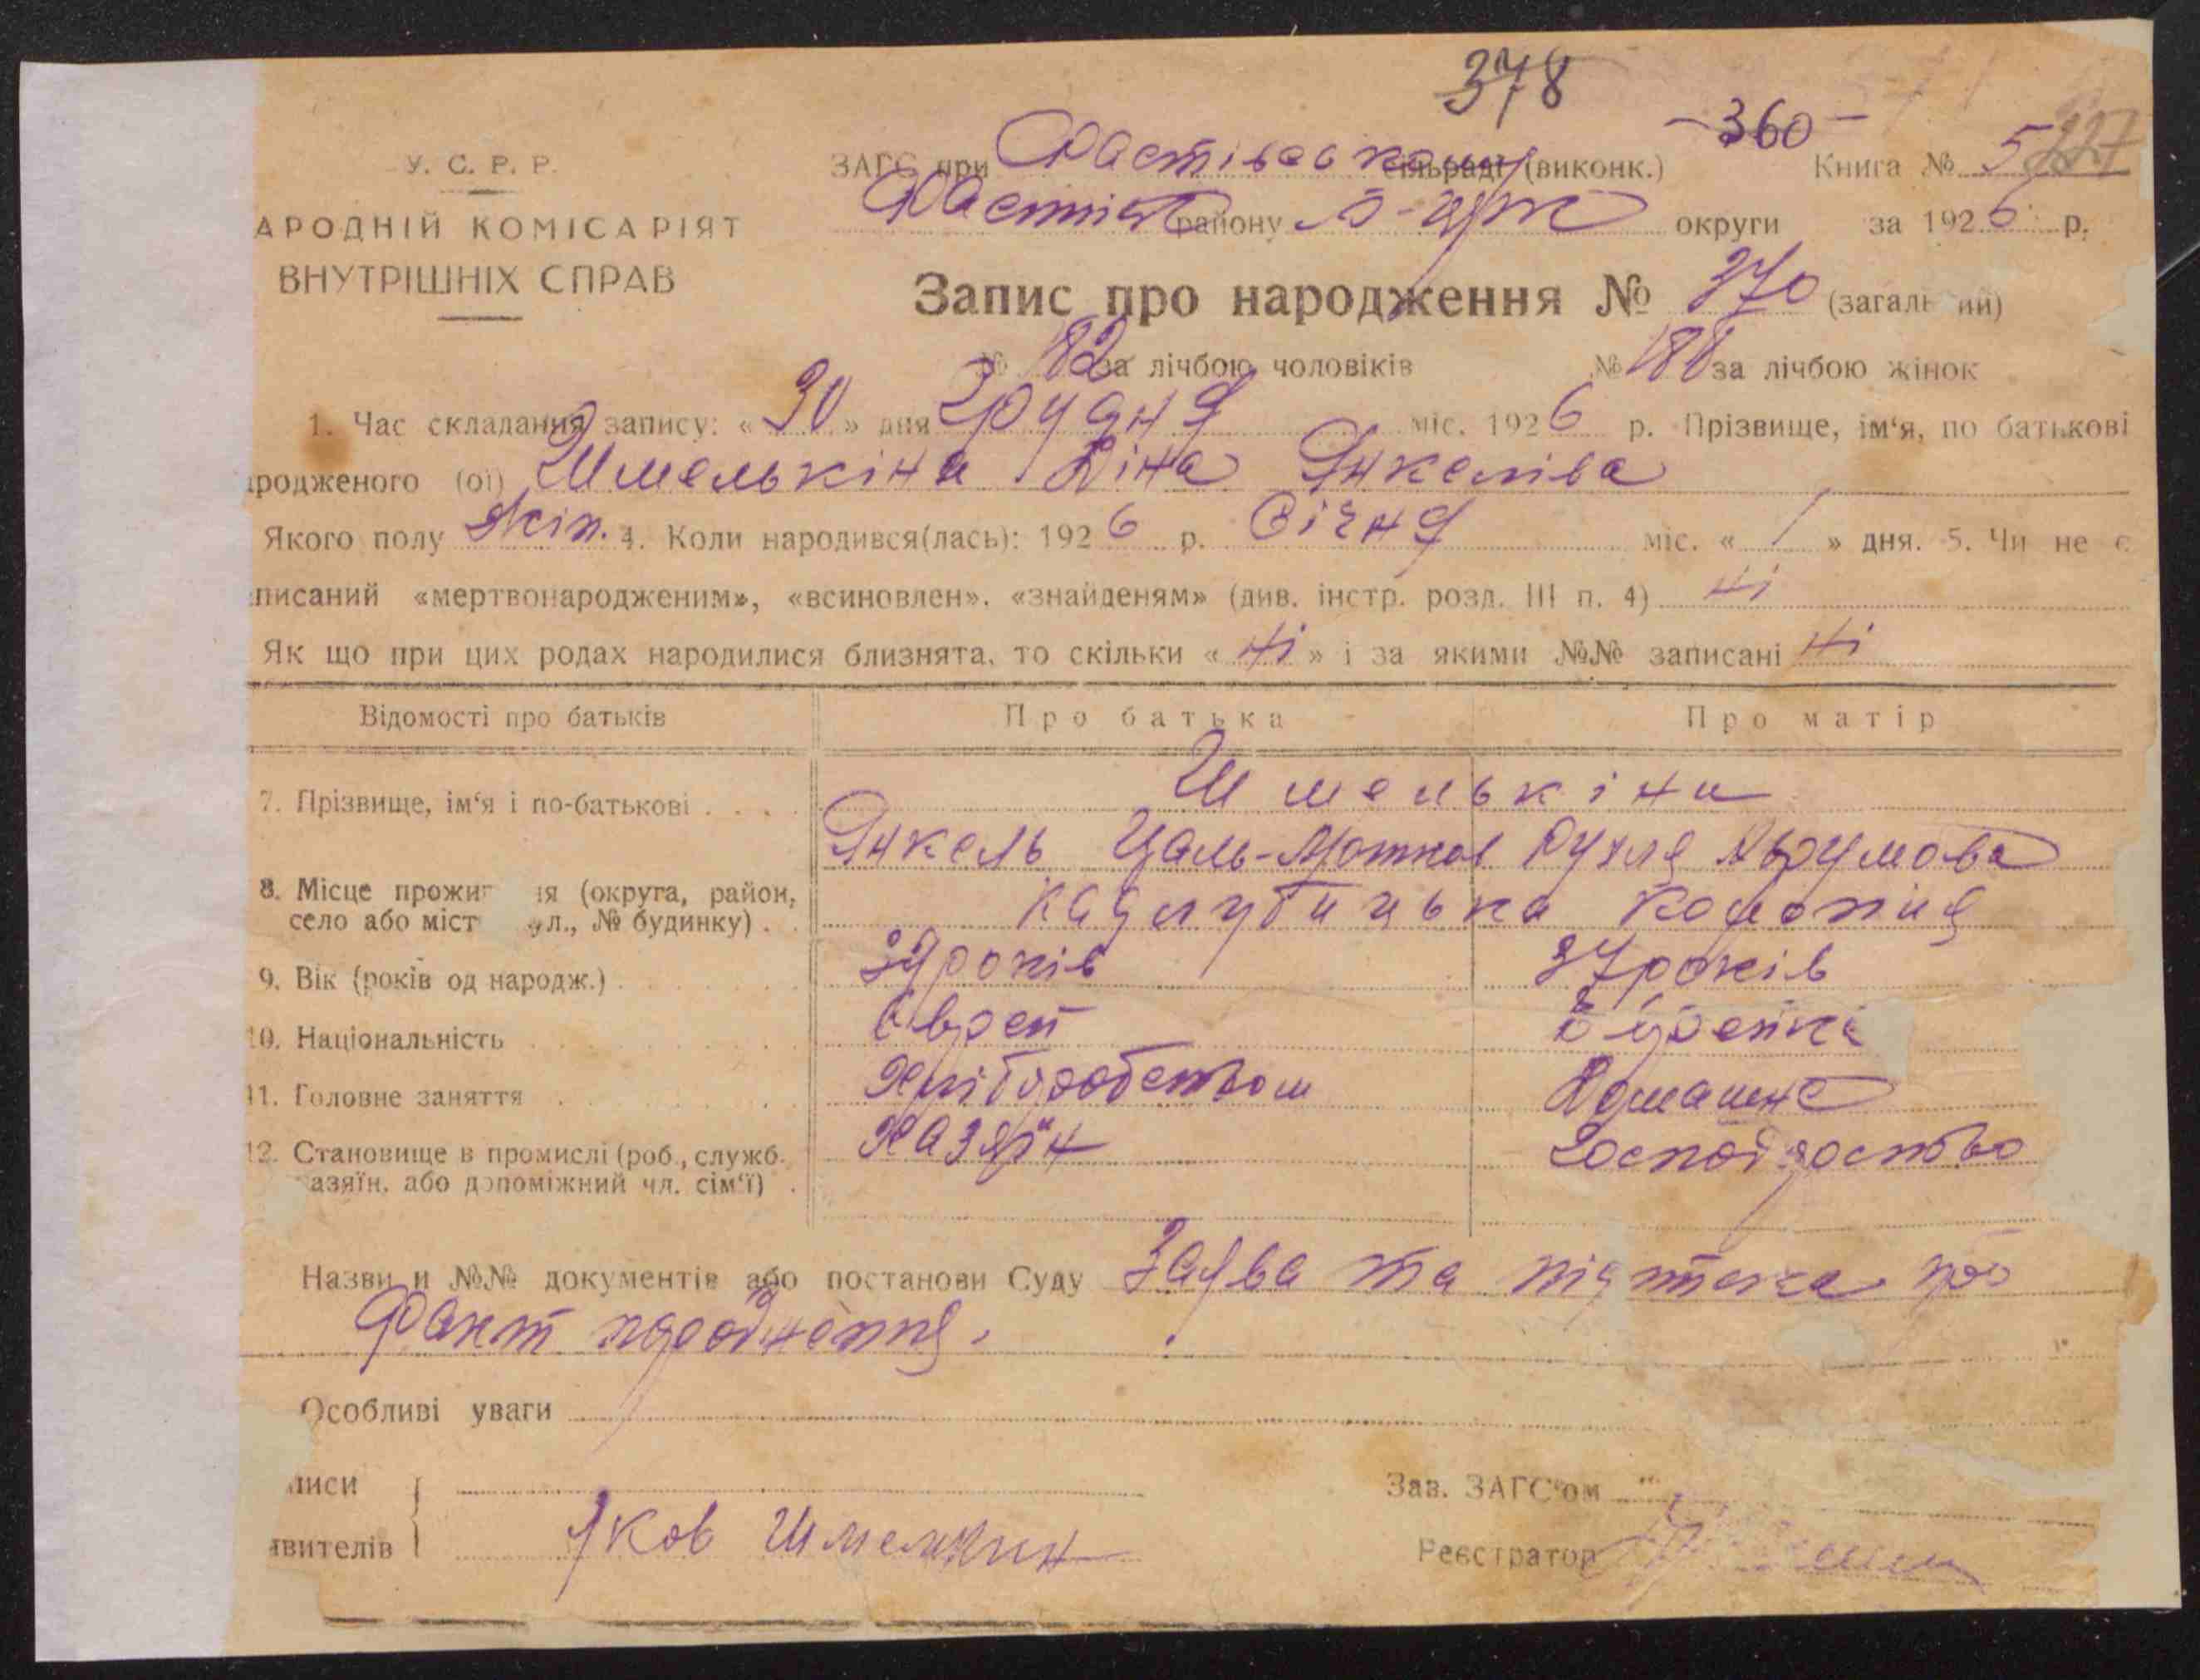 378
-360-
У. С. Р. Р.
ЗАГС при Фастівському сільраді (виконк.) Книга № 5 227
Фастів району Б-Церк округи за 1926 р.
АРОДНІЙ КОМІСАРІЯТ
ВНУТРІШНІХ СПРАВ
Запис про народження № 370 (загаль ий)
№ 182 за лічбою чоловіків № 188 за лічбою жінок
1. Час складання запису: «30» дня Грудня міс. 1926 р. Прізвище, ім'я, по батькові
ародженого (ої) Шмелькіна Діна Янкеліва
Якого полу жін. 4. Коли народився(лась): 1926 р. Січня міс. «1» дня. 5. Чи не є
писаний «мертвонародженим», «всиновлен», «знайденям» (див. інстр. розд. III п. 4) ні
Як що при цих родах народилися близнята, то скільки «ні» і за якими №№ записані ні
Відомості про батьків Про батька Про матір
Шмелькіни
7. Прізвище, ім'я і по-батькові . . . . Янкель Цаль-Мотков Рухля Аврумова
8. Місце прожит ія (округа, район,
село або міст ул., № будинку) . . Кадлубицька Колонія
9. Вік (років од народж.) . 39 років 37 років
10. Національність Єврей Єврейка
11. Головне заняття Хліборобством Домашнє
12. Становище в промислі (роб., служб. Хазяїн Господарство
азяїн, або допоміжний чл. сім'ї) .
Назви и №№ документів або постанови Суду Заява та підписка про
факт народження.
Особливі уваги
писи Зав. ЗАГС'ом
явителів Яков Шмелькин Реєстратор